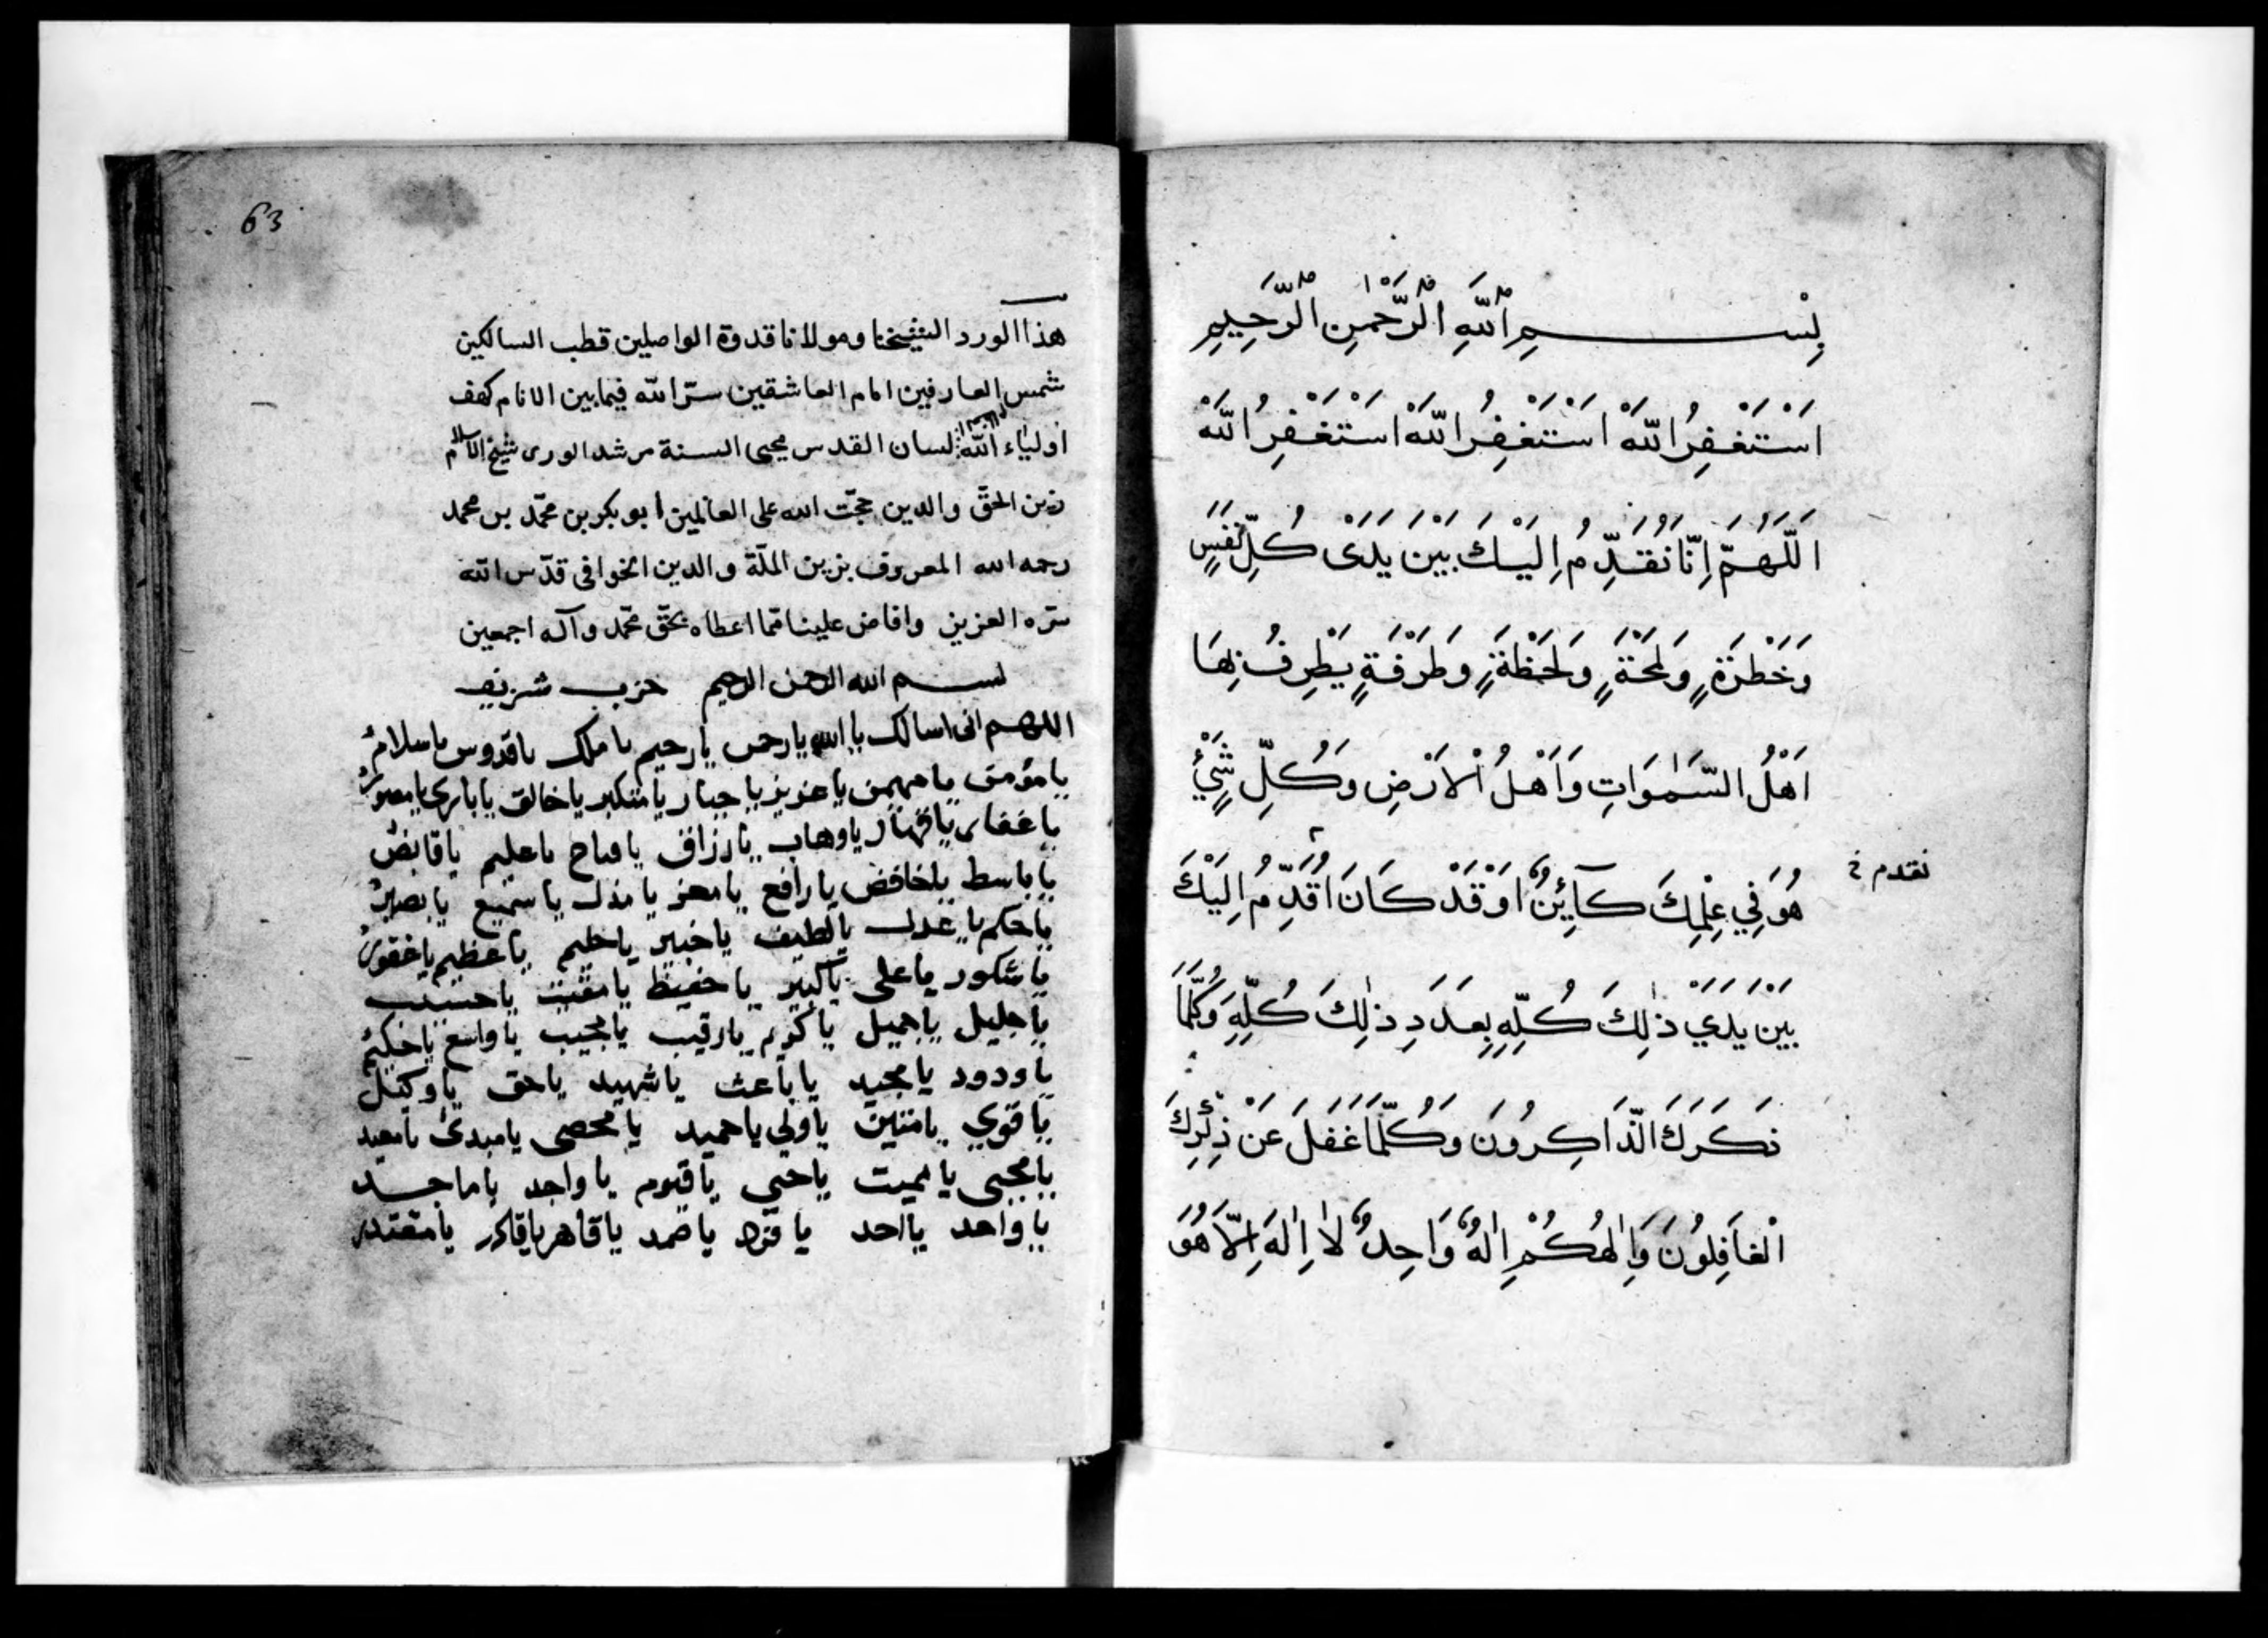 بِسْمِ اللّٰهِ الرَّحْمٰنِ الرَّحِيمِ
اَسْتَغْفِرُ اللّٰهَ اَسْتَغْفِرُ اللّٰهَ اَسْتَغْفِرُ اللّٰهَ
اَللّٰهُمَّ اِنَّا نُقَدِّمُ اِلَيْكَ بَيْنَ يَدَىْ كُلِّ نَفَسٍ
وَخَطْرَةٍ وَلَمْحَةٍ وَلَحْظَةٍ وَطَرْفَةٍ يَطْرِفُ بِهَا
اَهْلُ السَّمٰوَاتِ وَاَهْلُ الْاَرْضِ وَكُلِّ شَيْءٍ
هُوَ فِي عِلْمِكَ كَآئِنٌ اَوْ قَدْ كَانَ اُقَدِّمُ اِلَيْكَ
نقدم خ
بَيْنَ يَدَيْ ذٰلِكَ كُلِّهِ بِعَدَدِ ذٰلِكَ كُلِّهِ وَكُلَّمَا
ذَكَرَكَ الذَّاكِرُونَ وَكُلَّمَا غَفَلَ عَنْ ذِكْرِكَ
الْغَافِلُونَ وَاِلٰهُكُمْ اِلٰهٌ وَاحِدٌ لَا اِلٰهَ اِلَّا هُوَ
63
هذا الورد الشيخنا ومولانا قدوة الواصلين قطب السالكين
شمس العارفين امام العاشقين سرّ الله فيما بين الانام كهف
اولياء الله لسان القدس محيى السنة مرشد الورى شيخ الاسلام
زين الحقّ والدين حجّت الله على العالمين ابو بكر بن محمّد بن محمد
رحمه الله المعروف بزين الملّة والدين الخوافى قدّس الله
سرّه العزيز وافاض علينا ممّا اعطاه بحقّ محمّد وآله اجمعين
بسم الله الرحمن الرحيم حزب شريف
اللهم انى اسالك يا الله يا رحمن يا رحيم يا ملك يا قدوس يا سلامُ
يا مؤمن يا مهيمن يا عزيز يا جبار يا متكبر يا خالق يا بارئ يا مصورُ
يا غفار يا قهار يا وهاب يا رزاق يا فتاح يا عليم يا قابضُ
يا باسط يا خافض يا رافع يا معز يا مذل يا سميع يا بصيرُ
يا حكم يا عدل يا لطيف يا خبير يا حليم يا عظيم يا غفورُ
يا شكور يا على يا كبير يا حفيظ يا مقيت يا حسيب
يا جليل يا جميل يا كريم يا رقيب يا مجيب يا واسع يا حكيمُ
يا ودود يا مجيد يا باعث يا شهيد يا حق يا وكيل
يا قوي يا متين يا ولي يا حميد يا محصى يا مبدئ يا معيد
يا محيى يا مميت يا حيى يا قيوم يا واجد يا ماجد
يا واحد يا احد يا فرد يا صمد يا قاهر يا قادر يا مقتدر